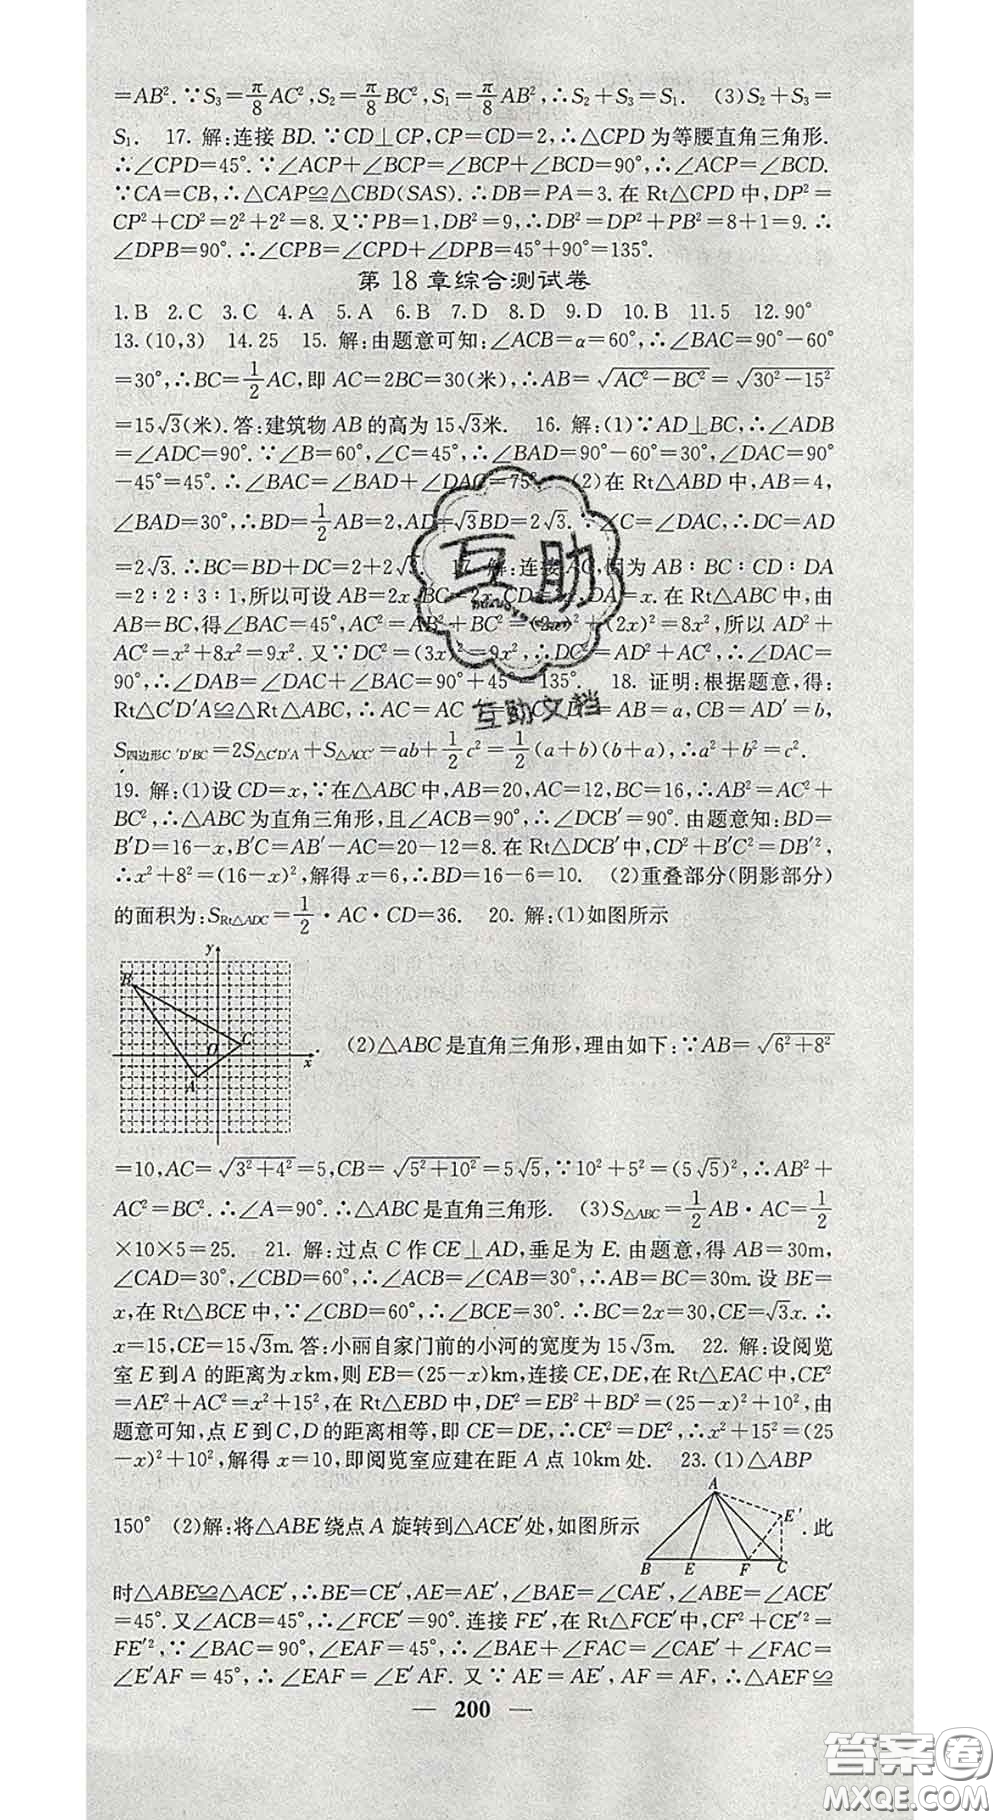 =AB².∵S₃=π/8AC²,S₂=π/8BC²,S₁=π/8AB²,∴S₂+S₃=S₁. (3)S₂+S₃=
S₁. 17. 解:连接 BD.∵CD⊥CP,CP=CD=2,∴△CPD 为等腰直角三角形.
∴∠CPD=45°.∵∠ACP+∠BCP=∠BCP+∠BCD=90°,∴∠ACP=∠BCD.
∵CA=CB,∴△CAP≌△CBD(SAS).∴DB=PA=3.在 Rt△CPD 中,DP²=
CP²+CD²=2²+2²=8.又∵PB=1,DB²=9,∴DB²=DP²+PB²=8+1=9.∴
∠DPB=90°.∴∠CPB=∠CPD+∠DPB=45°+90°=135°.
第 18 章综合测试卷
1.B 2.C 3.C 4.A 5.A 6.B 7.D 8.D 9.D 10.B 11.5 12.90°
13.(10,3) 14.25 15. 解:由题意可知:∠ACB=α=60°,∴∠BAC=90°-60°
=30°,∴BC=1/2AC,即 AC=2BC=30(米),∴AB=√(AC²-BC²)=√(30²-15²)
=15√3(米).答:建筑物 AB 的高为 15√3米. 16. 解:(1)∵AD⊥BC,∴∠ADB
=∠ADC=90°.∵∠B=60°,∠C=45°,∴∠BAD=90°-60°=30°,∠DAC=90°
-45°=45°.∴∠BAC=∠BAD+∠DAC=75°. (2)在 Rt△ABD 中,AB=4,
∠BAD=30°,∴BD=1/2AB=2,AD=√3BD=2√3.∵∠C=∠DAC,∴DC=AD
=2√3.∴BC=BD+DC=2+2√3. 17. 解:连接 AC,因为 AB∶BC∶CD∶DA
=2∶2∶3∶1,所以可设 AB=2x,BC=2x,CD=3x,DA=x.在 Rt△ABC 中,由
AB=BC,得∠BAC=45°,AC²=AB²+BC²=(2x)²+(2x)²=8x²,所以 AD²+
AC²=x²+8x²=9x².又∵DC²=(3x)²=9x²,∴DC²=AD²+AC²,∴∠DAC=
90°,∴∠DAB=∠DAC+∠BAC=90°+45°=135°. 18. 证明:根据题意,得:
Rt△C′D′A≌△Rt△ABC,∴AC=AC AB=a,CB=AD′=b,
S四边形C′D′BC=2S△C′D′A+S△ACC′=ab+1/2c²=1/2(a+b)(b+a),∴a²+b²=c².
19. 解:(1)设 CD=x,∵在△ABC 中,AB=20,AC=12,BC=16,∴AB²=AC²+
BC²,∴△ABC 为直角三角形,且∠ACB=90°,∴∠DCB′=90°.由题意知:BD=
B′D=16-x,B′C=AB′-AC=20-12=8.在 Rt△DCB′中,CD²+B′C²=DB′²,
∴x²+8²=(16-x)²,解得 x=6,∴BD=16-6=10. (2)重叠部分(阴影部分)
的面积为:SRt△ADC=1/2·AC·CD=36. 20. 解:(1)如图所示
y B O C A x
. (2)△ABC 是直角三角形,理由如下:∵AB=√(6²+8²)
=10,AC=√(3²+4²)=5,CB=√(5²+10²)=5√5,∵10²+5²=(5√5)²,∴AB²+
AC²=BC².∴∠A=90°.∴△ABC 是直角三角形. (3)S△ABC=1/2AB·AC=1/2
×10×5=25. 21. 解:过点 C 作 CE⊥AD,垂足为 E.由题意,得 AB=30m,
∠CAD=30°,∠CBD=60°,∴∠ACB=∠CAB=30°,∴AB=BC=30m.设 BE=
x,在 Rt△BCE 中,∵∠CBD=60°,∴∠BCE=30°.∴BC=2x=30,CE=√3x.∴
x=15,CE=15√3m.答:小丽自家门前的小河的宽度为 15√3m. 22. 解:设阅览
室 E 到 A 的距离为 xkm,则 EB=(25-x)km,连接 CE,DE,在 Rt△EAC 中,CE²
=AE²+AC²=x²+15²,在 Rt△EBD 中,DE²=EB²+BD²=(25-x)²+10²,由
题意可知,点 E 到 C,D 的距离相等,即 CE=DE,∴CE²=DE²,∴x²+15²=(25
-x)²+10²,解得 x=10,即阅览室应建在距 A 点 10km 处. 23.(1)△ABP
150° (2)解:将△ABE 绕点 A 旋转到△ACE′处,如图所示
A E′ B E F C
.此
时△ABE≌△ACE′,∴BE=CE′,AE=AE′,∠BAE=∠CAE′,∠ABE=∠ACE′
=45°.又∠ACB=45°,∴∠FCE′=90°.连接 FE′,在 Rt△FCE′中,CF²+CE′²=
FE′²,∵∠BAC=90°,∠EAF=45°,∴∠BAE+∠FAC=∠CAE′+∠FAC=
∠E′AF=45°,∴∠EAF=∠E′AF.又∵AE=AE′,AF=AF,∴△AEF≌
— 200 —
互助
互助文档
答案圈
MXQE.COM